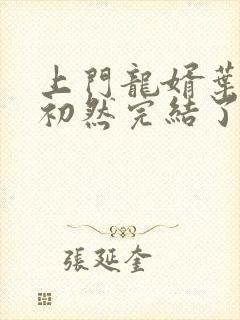 上門龍婿葉
初然完結了
張延奎